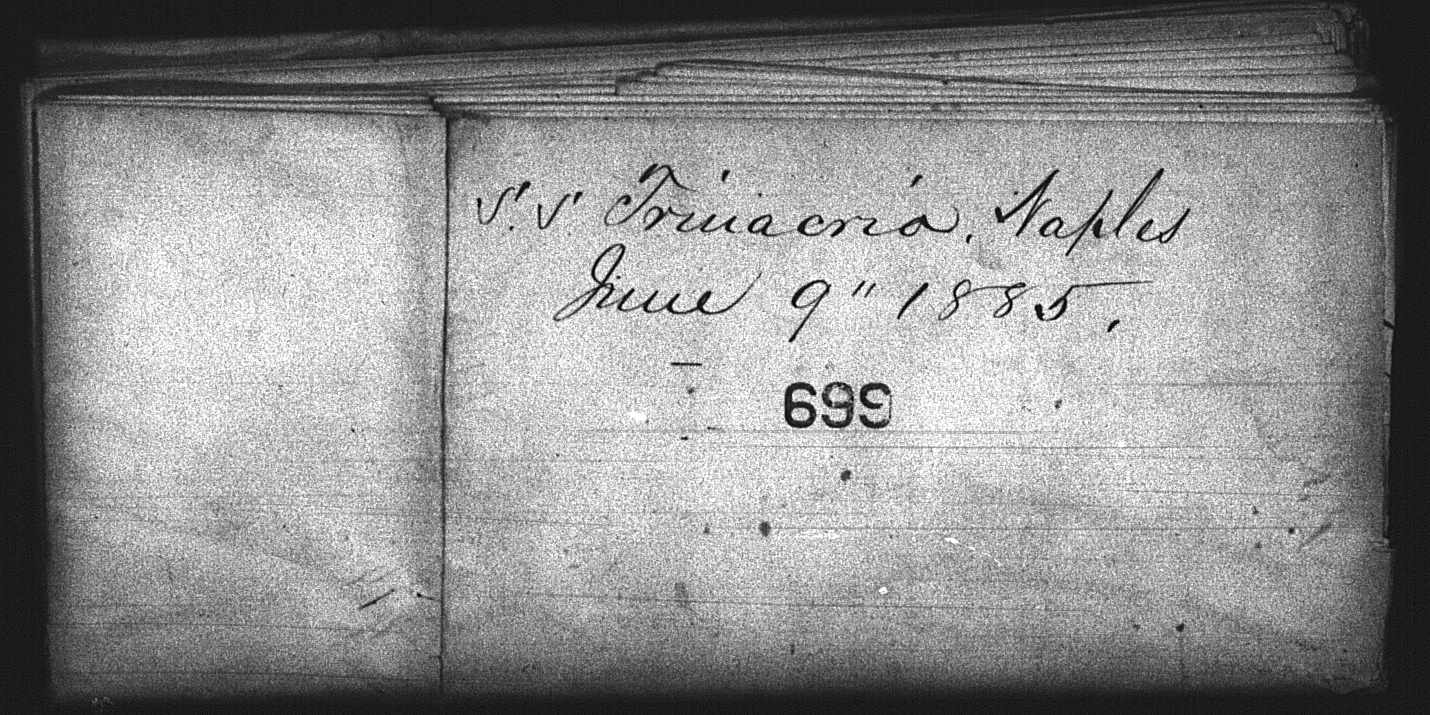 S. S. Trinacria, Naples
June 9" 1885.
699